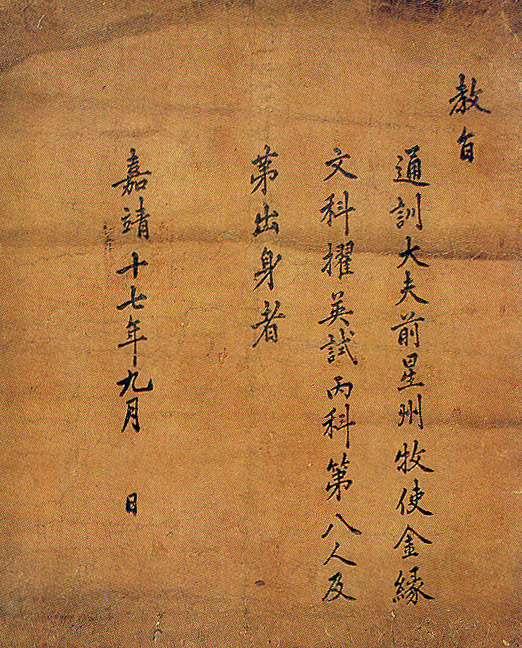 教旨
通訓大夫前星州牧使金緣
文科擢英試丙科第八人及
第出身者
嘉靖十七年九月 日